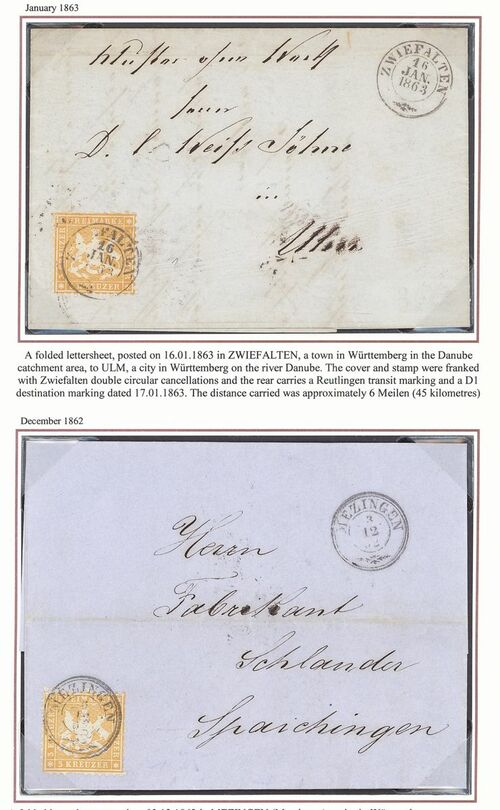 January 1863
Muster ohne Werth
ZWIEFALTEN
16
JAN.
1863
Herrn
D. C. Weiß Söhne
in
Ulm
FREIMARKE
ZWIEFALTEN
16
JAN.
3 KREUZER
A folded lettersheet, posted on 16.01.1863 in ZWIEFALTEN, a town in Württemberg in the Danube
catchment area, to ULM, a city in Württemberg on the river Danube. The cover and stamp were franked
with Zwiefalten double circular cancellations and the rear carries a Reutlingen transit marking and a D1
destination marking dated 17.01.1863. The distance carried was approximately 6 Meilen (45 kilometres)
December 1862
MEZINGEN
3
12
Herrn
Fabrikant
Schlander
Spaichingen
MEZINGEN
3 KREUZER